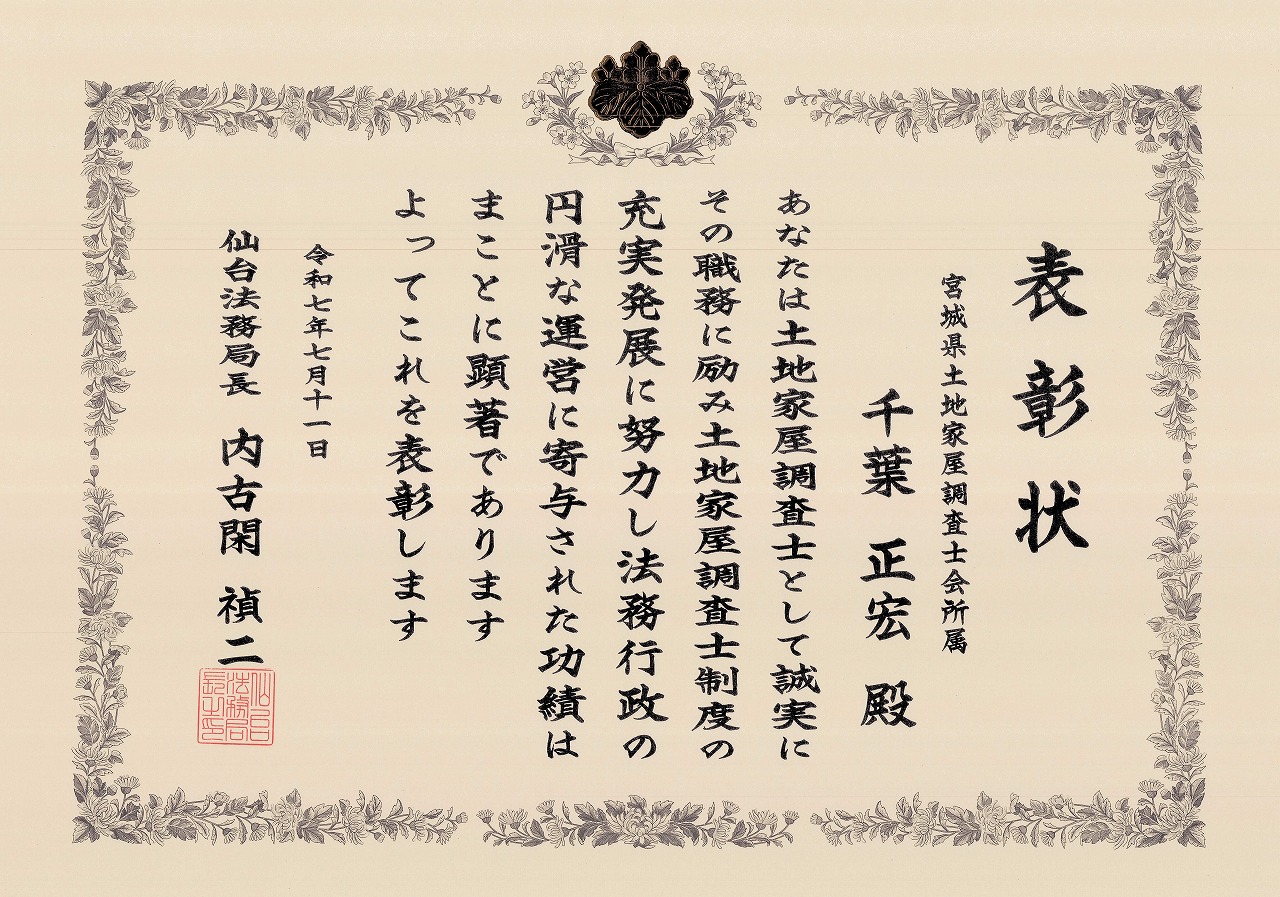 表彰状
宮城県土地家屋調査士会所属
千葉 正宏 殿
あなたは土地家屋調査士として誠実に
その職務に励み土地家屋調査士制度の
充実発展に努力し法務行政の
円滑な運営に寄与された功績は
まことに顕著であります
よってこれを表彰します
令和七年七月十一日
仙台法務局長 内古閑 禎二
仙台
法務局
長之印